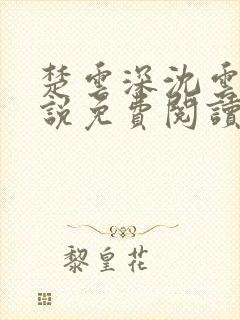 楚雲深沈雲
說免費閱讀
黎皇花